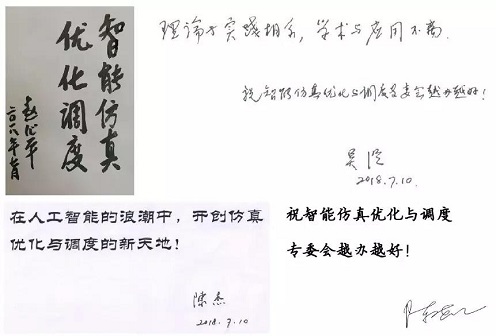 智能仿真
优化调度
赵沁平
二〇一八年七月
理论与实践相系，学术与应用不离.
祝智能仿真优化与调度专委会越办越好！
吴澄
2018.7.10.
在人工智能的浪潮中，开创仿真
优化与调度的新天地！
陈杰
2018.7.10
祝智能仿真优化与调度
专委会越办越好！